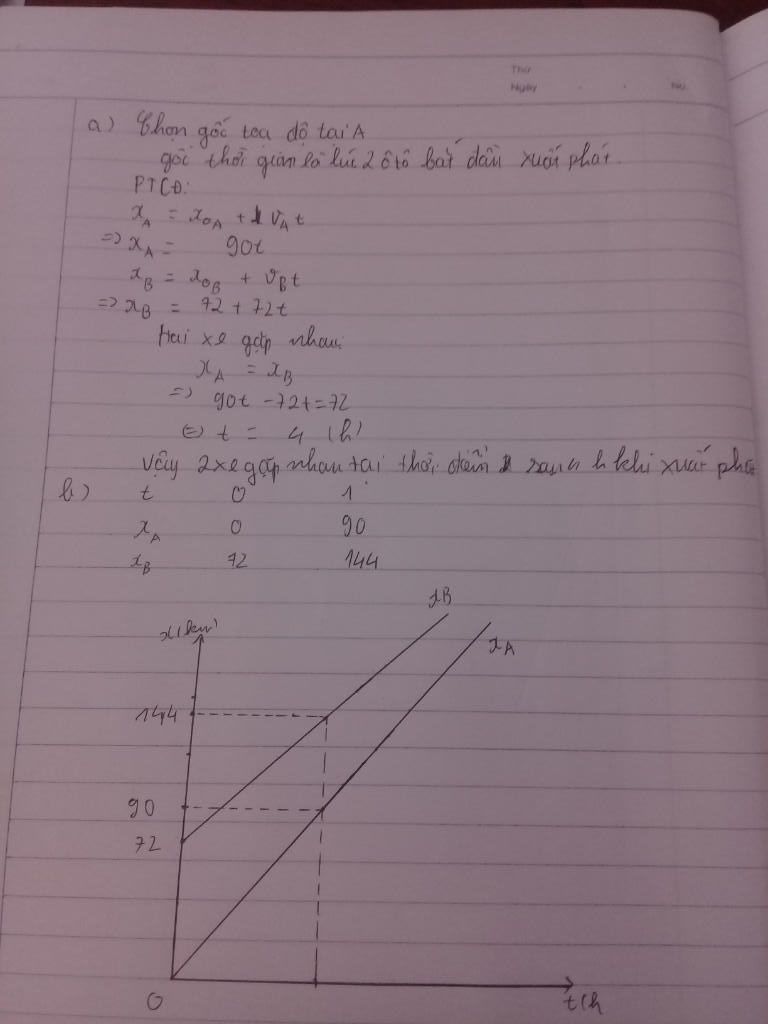 Thứ
Ngày . . No.
a) Chọn gốc toạ độ tại A
gốc thời gian là lúc 2 ôtô bắt đầu xuất phát.
PTCĐ:
x_A = x_0A + v_A t
=> x_A = 90t
x_B = x_0B + v_B t
=> x_B = 72 + 72t
Hai xe gặp nhau:
x_A = x_B
=> 90t - 72t = 72
<=> t = 4 (h)
Vậy 2 xe gặp nhau tại thời điểm sau 4 h khi xuất phát
b) t 0 1
x_A 0 90
x_B 72 144
xB
x(km)
xA
144
90
72
O
t(h